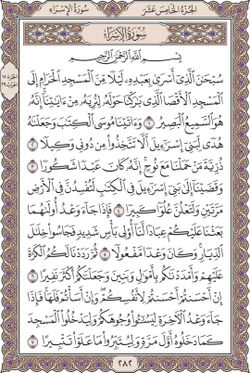 الجُزْءُ الخَامِسَ عَشَرَ
سُورَةُ الإِسْرَاءِ
سُورَةُ الإِسْرَاءِ
بِسْمِ ٱللَّهِ ٱلرَّحْمَٰنِ ٱلرَّحِيمِ
سُبْحَٰنَ ٱلَّذِىٓ أَسْرَىٰ بِعَبْدِهِۦ لَيْلًا مِّنَ ٱلْمَسْجِدِ ٱلْحَرَامِ إِلَى
ٱلْمَسْجِدِ ٱلْأَقْصَا ٱلَّذِى بَٰرَكْنَا حَوْلَهُۥ لِنُرِيَهُۥ مِنْ ءَايَٰتِنَآ إِنَّهُۥ
هُوَ ٱلسَّمِيعُ ٱلْبَصِيرُ ١ وَءَاتَيْنَا مُوسَى ٱلْكِتَٰبَ وَجَعَلْنَٰهُ
هُدًى لِّبَنِىٓ إِسْرَٰٓءِيلَ أَلَّا تَتَّخِذُوا۟ مِن دُونِى وَكِيلًا ٢
ذُرِّيَّةَ مَنْ حَمَلْنَا مَعَ نُوحٍ إِنَّهُۥ كَانَ عَبْدًا شَكُورًا ٣
وَقَضَيْنَآ إِلَىٰ بَنِىٓ إِسْرَٰٓءِيلَ فِى ٱلْكِتَٰبِ لَتُفْسِدُنَّ فِى ٱلْأَرْضِ
مَرَّتَيْنِ وَلَتَعْلُنَّ عُلُوًّا كَبِيرًا ٤ فَإِذَا جَآءَ وَعْدُ أُولَىٰهُمَا
بَعَثْنَا عَلَيْكُمْ عِبَادًا لَّنَآ أُو۟لِى بَأْسٍ شَدِيدٍ فَجَاسُوا۟ خِلَٰلَ
ٱلدِّيَارِ وَكَانَ وَعْدًا مَّفْعُولًا ٥ ثُمَّ رَدَدْنَا لَكُمُ ٱلْكَرَّةَ
عَلَيْهِمْ وَأَمْدَدْنَٰكُم بِأَمْوَٰلٍ وَبَنِينَ وَجَعَلْنَٰكُمْ أَكْثَرَ نَفِيرًا ٦
إِنْ أَحْسَنتُمْ أَحْسَنتُمْ لِأَنفُسِكُمْ وَإِنْ أَسَأْتُمْ فَلَهَا فَإِذَا
جَآءَ وَعْدُ ٱلْءَاخِرَةِ لِيَسُـۥٓـُٔوا۟ وُجُوهَكُمْ وَلِيَدْخُلُوا۟ ٱلْمَسْجِدَ
كَمَا دَخَلُوهُ أَوَّلَ مَرَّةٍ وَلِيُتَبِّرُوا۟ مَا عَلَوْا۟ تَتْبِيرًا ٧
٢٨٢